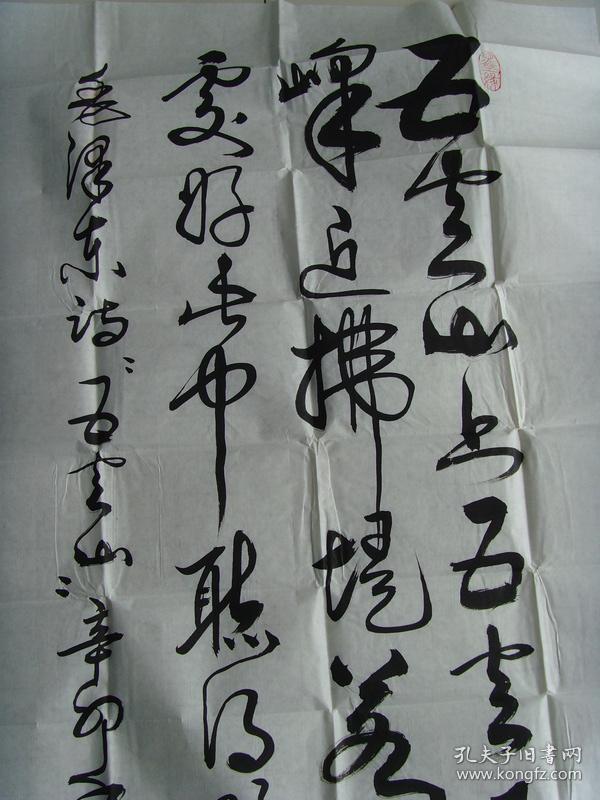 五云山上五云
峰近拂堤若
處好此中聽得
毛泽东诗"五云山"辛卯
孔夫子旧书网
www.kongfz.com